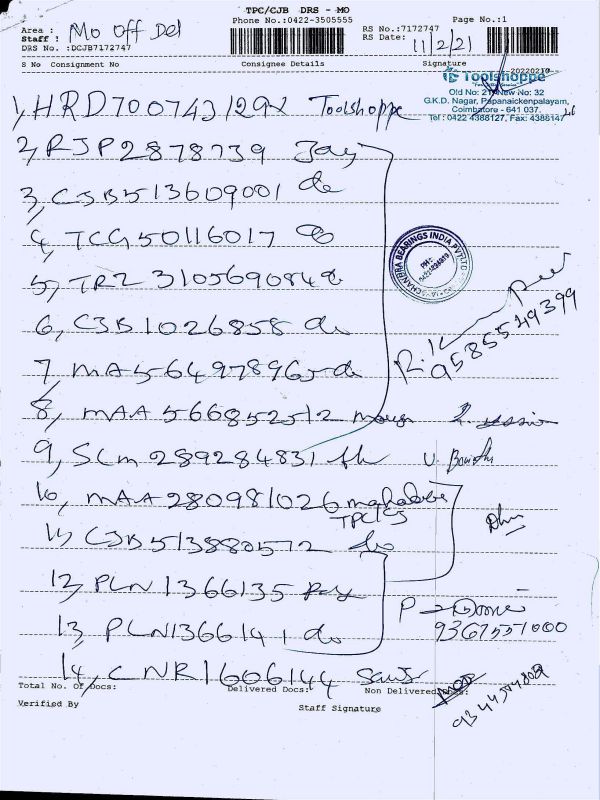 TPC/CJB DRS - MO
Phone No.:0422-3505555
Page No.:1
Area :
Staff : Mo Off Del
DRS No. :DCJB7172747
RS No.:7172747
RS Date: 11/2/21
S No Consignment No Consignee Details Signature
20220210
Toolshoppe
Old No: 21, New No: 32
G.K.D. Nagar, Papanaickenpalayam,
Coimbatore - 641 037.
Tel: 0422 4388127, Fax: 4388147
1, HRD700743129x Toolshoppe
2, RJP2878739 Jay
3, CJB513609001 do
4, TCG50116017 do
5, TRZ 310569084 do
6, CJB1026858 do
7, MA564978965 do
CHANDRA BEARINGS INDIA PVT LTD
PH:
9585549399
8, MAA 566852512
9, SCM 289284831
10, MAA280981026
TPC/CJ
11, CJB513880572 do
12, PLN1366135
13, PLN1366141 do
9367551000
14, CNR1606144
Total No. Of Docs: Delivered Docs: Non Delivered Docs:
Verified By
Staff Signature